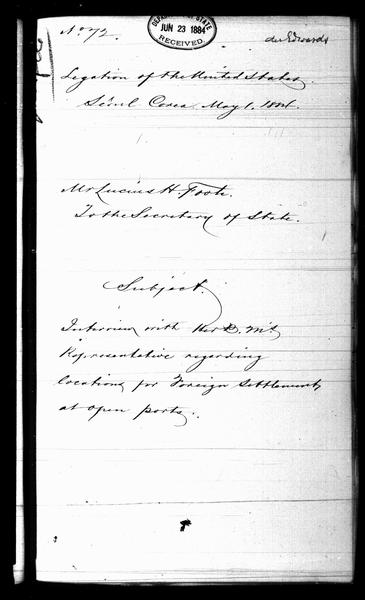 No 72.
DEPARTMENT OF STATE
JUN 23 1884
RECEIVED
Legation of the United States
Séoul Corea May 1, 1884.
Mr Lucius H. Foote.
To the Secretary of State.
Subject.
Interview with Her B. M's
Representative regarding
locations for Foreign Settlements
at open ports.